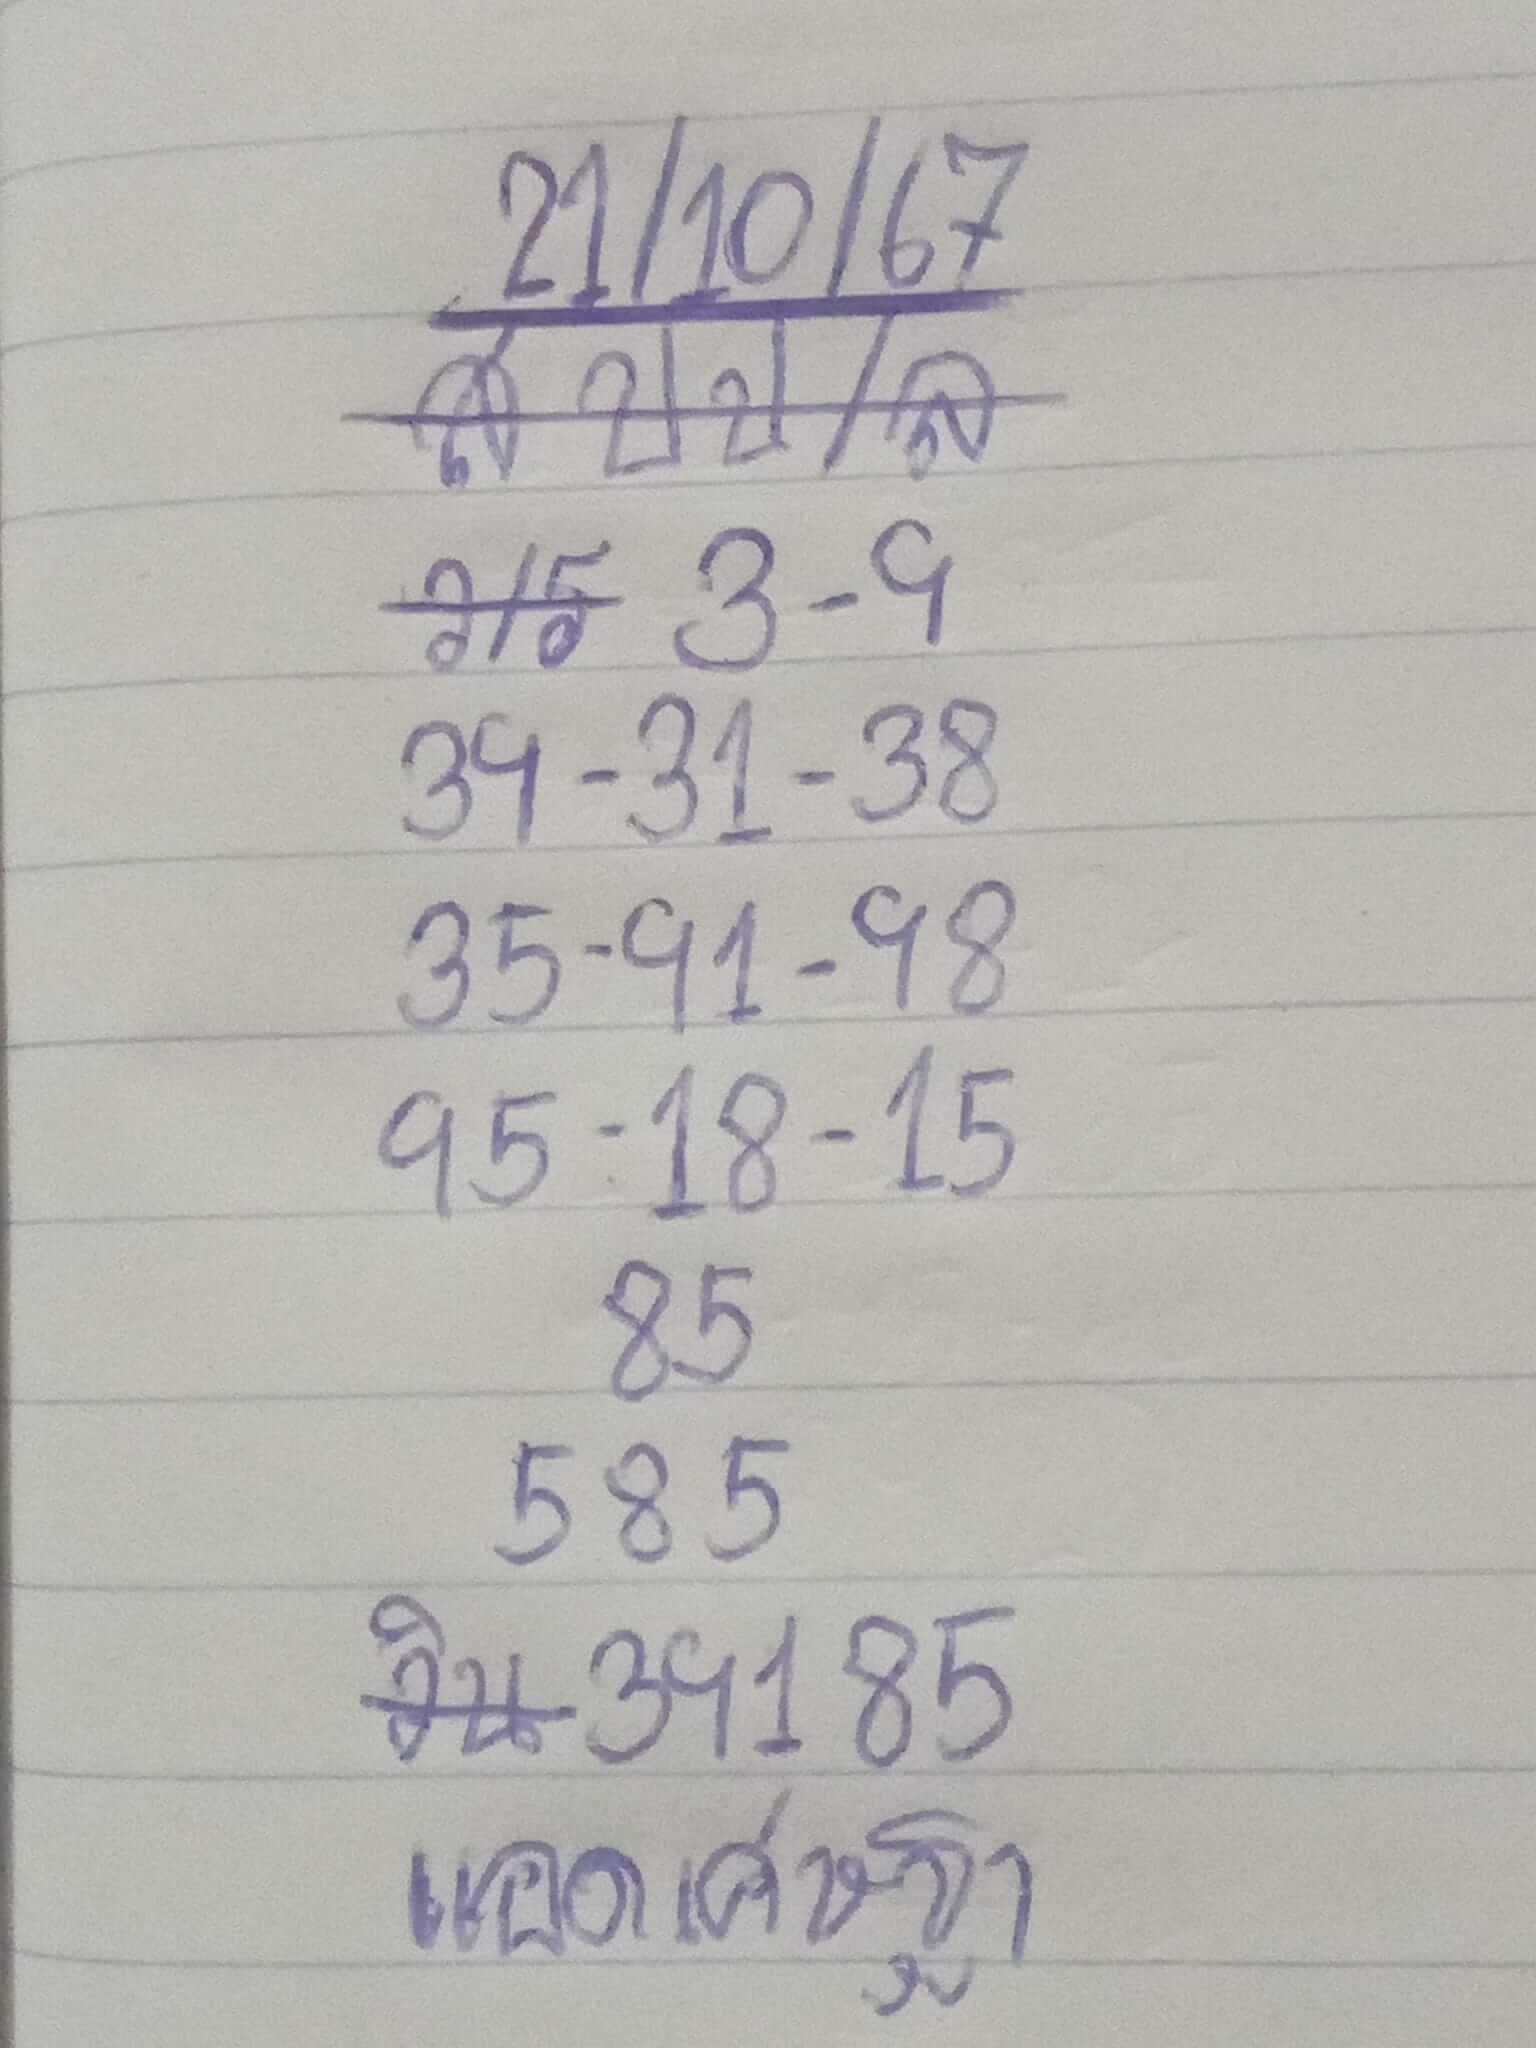 21/10/67
ส ปป/ล
ว/ร 3-9
39-31-38
35-91-98
95-18-15
85
585
วิน 39185
แอดเศษฐา